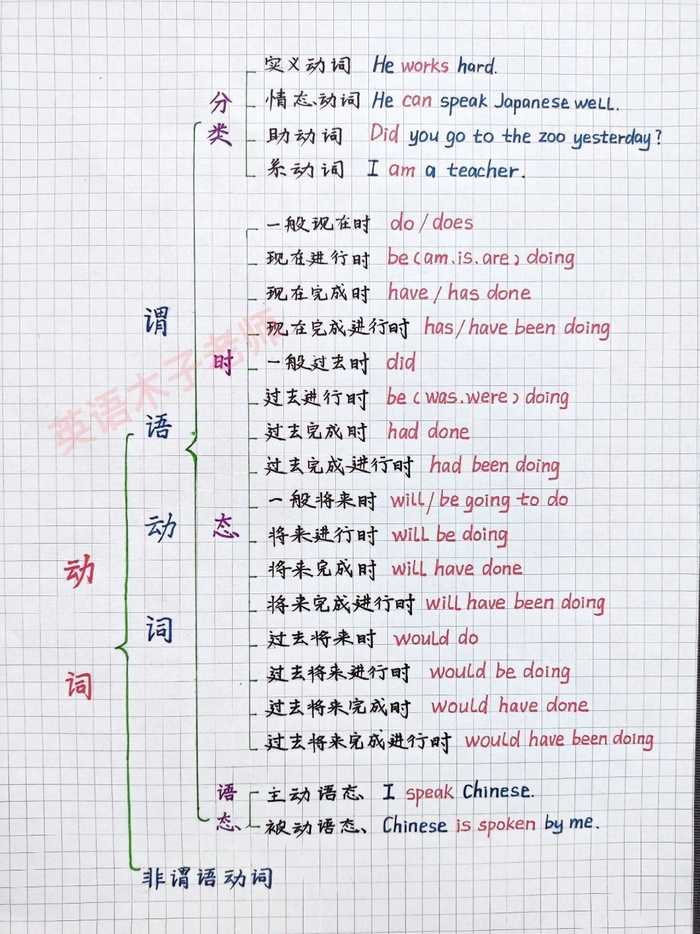 动词
谓语动词
分类
实义动词 He works hard.
情态动词 He can speak Japanese well.
助动词 Did you go to the zoo yesterday?
系动词 I am a teacher.
时态
一般现在时 do/does
现在进行时 be(am.is.are)doing
现在完成时 have/has done
现在完成进行时 has/have been doing
一般过去时 did
过去进行时 be(was.were)doing
过去完成时 had done
过去完成进行时 had been doing
一般将来时 will/be going to do
将来进行时 will be doing
将来完成时 will have done
将来完成进行时 will have been doing
过去将来时 would do
过去将来进行时 would be doing
过去将来完成时 would have done
过去将来完成进行时 would have been doing
语态
主动语态 I speak Chinese.
被动语态 Chinese is spoken by me.
非谓语动词
英语木子老师